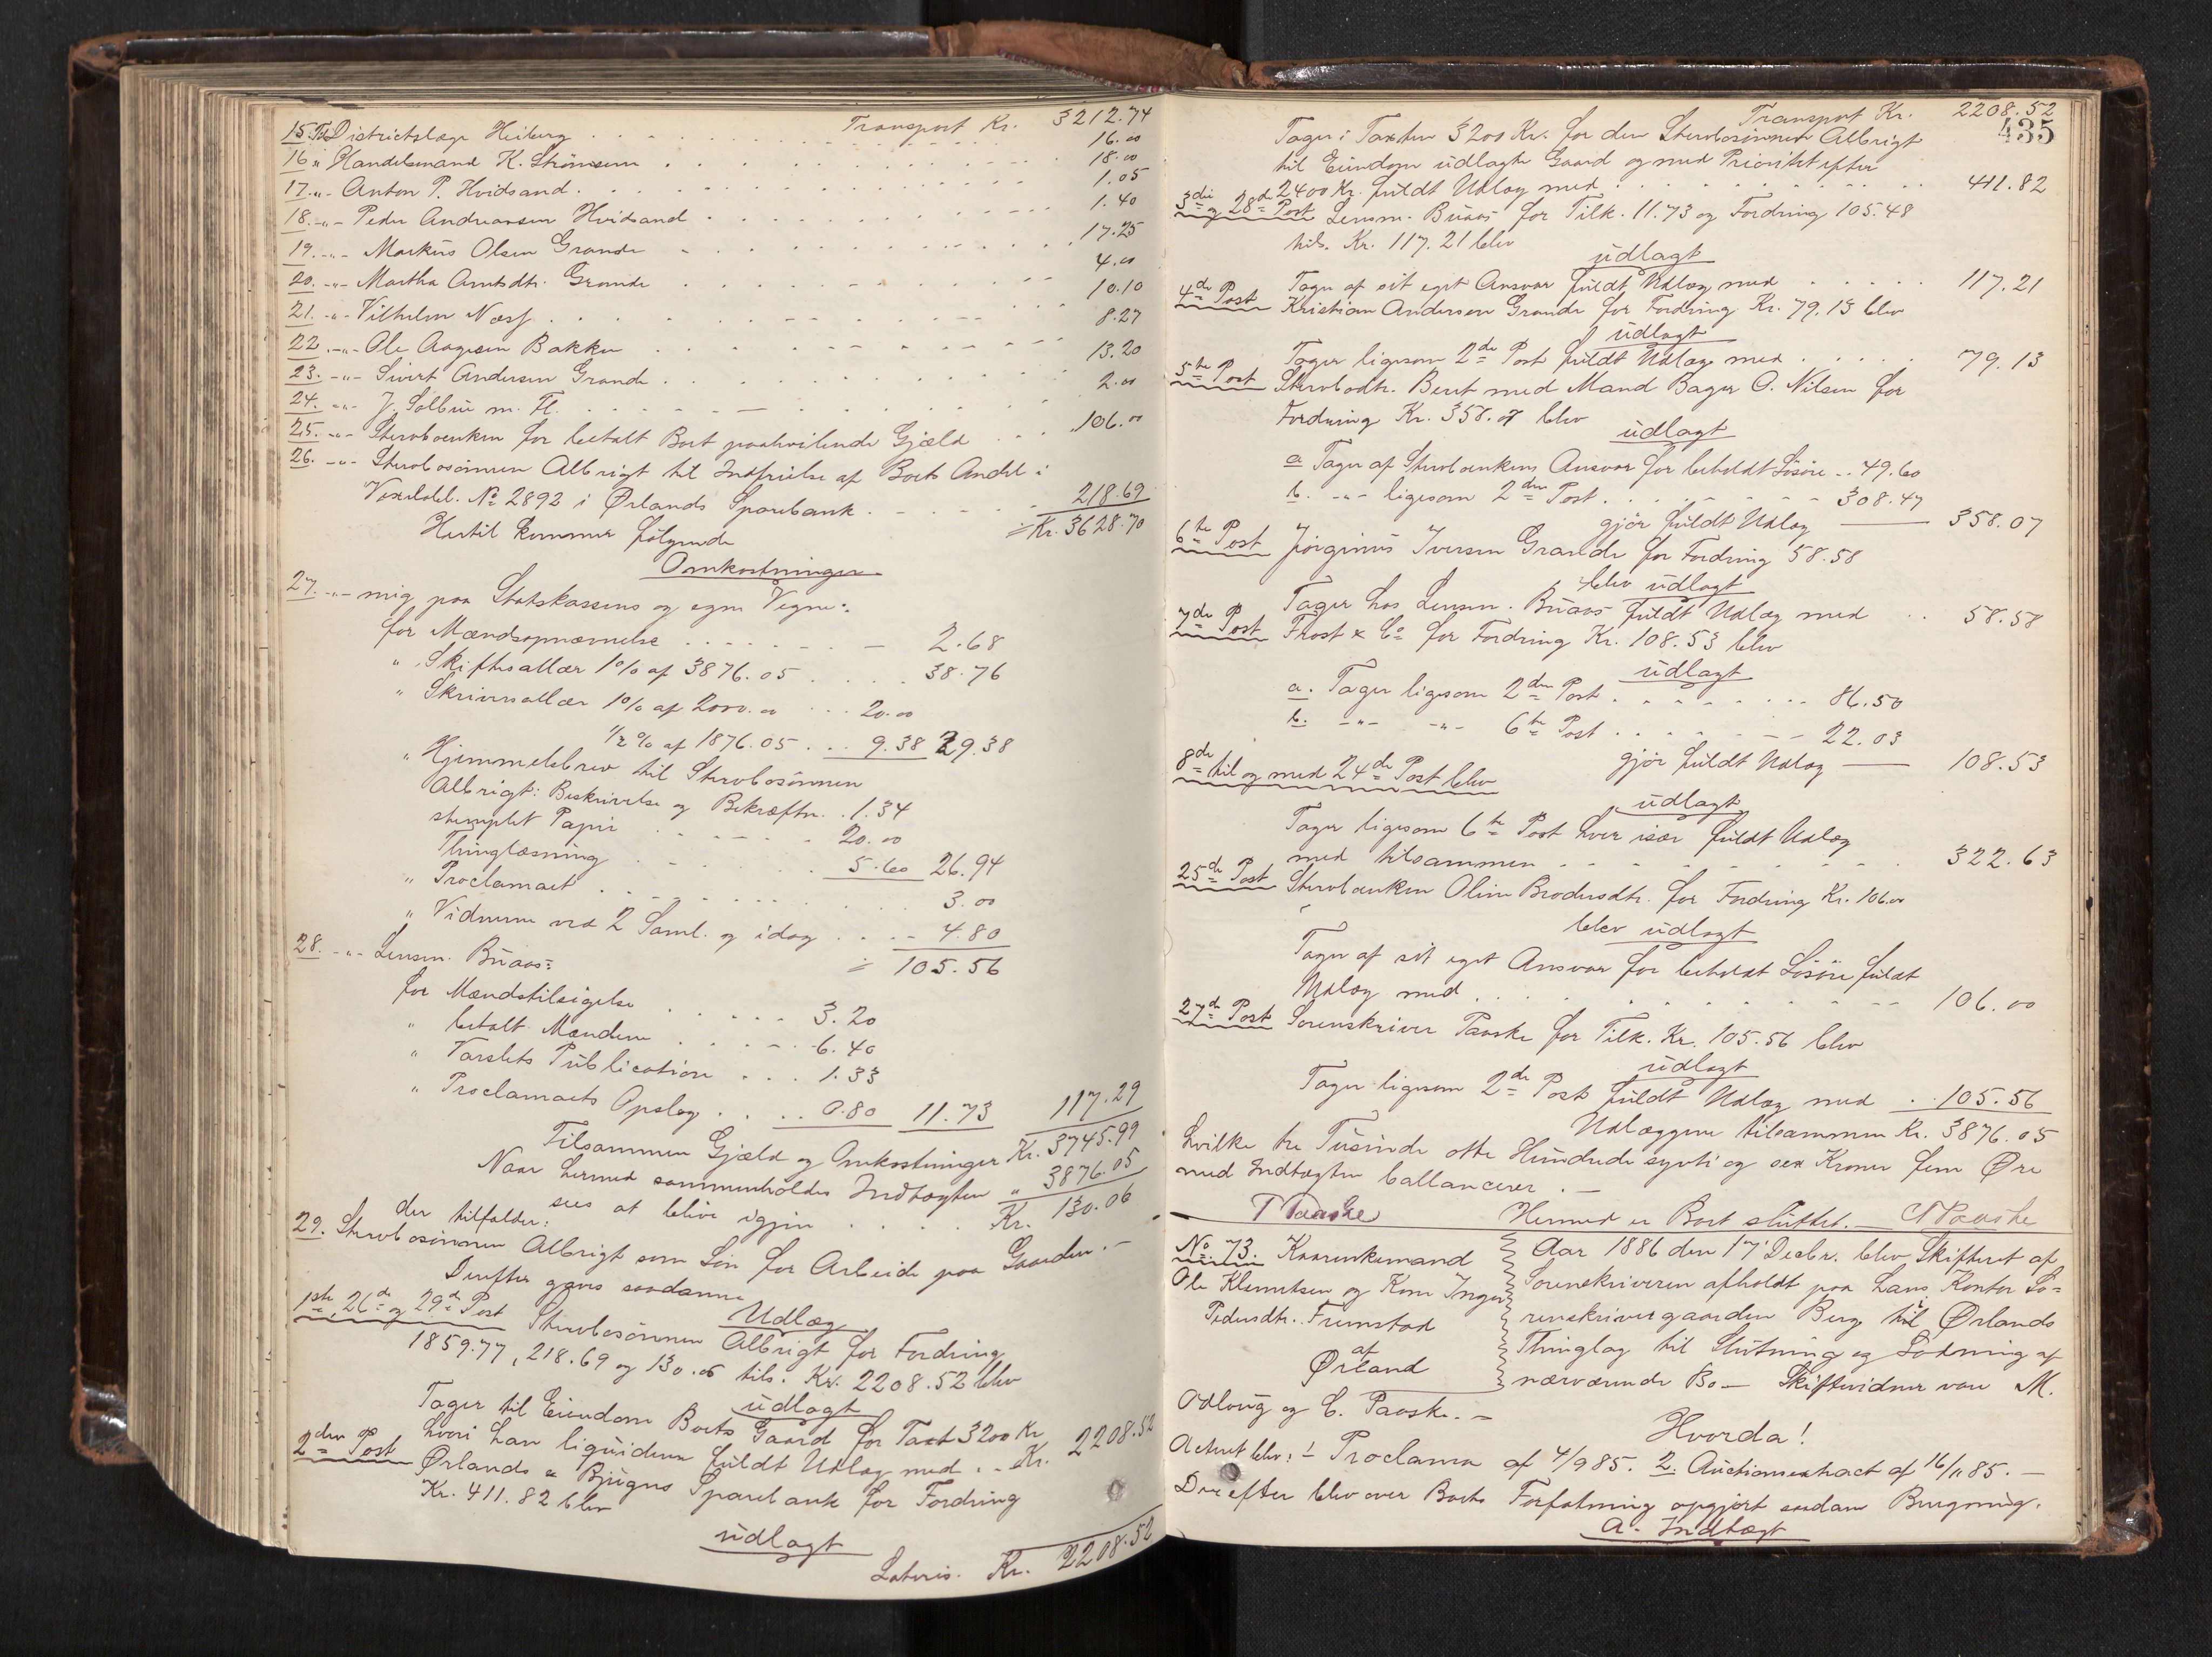 Transport Kr. 3212.74
15. Til Districtslæge Heiberg . . . 16.00
16 " Handelsmand K. Strömsem . . . 18.00
17. -"- Anton P. Hvidsand . . . 1.05
18. -"- Peder Andreassen Hvidsand . . . 1.40
19. -"- Markus Olsen Grande . . . 17.25
20. -"- Martha Arntsdtr. Grande . . . 4.00
21. -"- Vilhelm Næss . . . 10.10
22. -"- Ole Aagesen Bakken . . . 8.27
23. -"- Sivert Andersen Grande . . . 13.20
24. -"- J. Solbue m. Fl. . . . 2.00
25. -"- Stervboenken for betalt Boet paahvilende Gjæld . . . 106.00
26. -"- Stervbosønnen Albrigt til Indfrielse af Boets Andel i
Vexelobl. No 2892 i Ørlands Sparebank . . . 218.69
= Kr. 3628.70
Hertil kommer følgende
Omkostninger
27. -"- mig paa Statskassens og egne Vegne:
for Mændsopnævnelse . . . 2.68
" Skiftesallær 1% af 3876.05 . . . 38.76
" Skriversallær 1% af 2000.00 . . . 20.00
1/2% af 1876.05 . . . 9.38 29.38
" Hjemmelsbrev til Stervbosønnen
Albrigt: Beskrivelse og Bekræftn. . 1.34
stemplet Papir . . . 20.00
Thinglæsning . . . 5.60 26.94
" Proclamaet . . . 3.00
" Vidnerne ved 2 Saml. og idag . . . 4.80
= 105.56
28. -"- Lensm. Buaas:
for Mændstilsigelse . . . 3.20
" betalt Mændene . . . 6.40
" Varslets Publication . . . 1.33
" Proclamaets Opslag . . . 0.80 11.73 117.29
Tilsammen Gjæld og Omkostninger Kr. 3745.99
Naar hermed sammenholdes Indtægten " 3876.05
sees at blive igjen . . . Kr. 130.06
der tilfalder:
29. Stervbosønnen Albrigt som Løn for Arbeide paa Gaarden. —
Derefter gjøres saadanne
Udlæg
1ste, 26de og 29de Post Stervbosønnen Albrigt for Fordring
1859.77, 218.69 og 130.06 tils. Kr. 2208.52 blev
udlagt
Tager til Eiendom Boets Gaard for Taxt 3200 Kr
hvori han liquiderer fuldt Udlæg med . - Kr. 2208.52
2den Post Ørlands & Bjugns Sparebank for Fordring
Kr. 411.82 blev
udlagt
Lateris. Kr. 2208.52
435
Transport Kr. 2208.52
Tager i Taxten 3200 Kr. for den Stervbosønnen Albrigt
til Eiendom udlagte Gaard og med Prioritet efter
2400 Kr. fuldt Udlæg med . . . 411.82
3die og 28de Post Lensm. Buaas for Tilk. 11.73 og Fordring 105.48
tils. Kr. 117.21 blev
udlagt
Tager af sit eget Ansvar fuldt Udlæg med . . . 117.21
4de Post Kristian Andersen Grande for Fordring Kr. 79.13 blev
udlagt
Tager ligesom 2den Post fuldt Udlæg med . . . 79.13
5te Post Stervbodtr. Berit med Mand Bager O. Nilsen for
Fordring Kr. 358.07 blev
udlagt
a Tager af Stervboenkens Ansvar for beholdt Løsøre . . 49.60
b. -"- ligesom 2den Post . . . 308.47
gjør fuldt Udlæg 358.07
6te Post Jørginus Iversen Grande for Fordring 58.58
blev udlagt
Tager hos Lensm. Buaas fuldt Udlæg med . . 58.58
7de Post Frost & Co for Fordring Kr. 108.53 blev
udlagt
a. Tager ligesom 2den Post . . . 86.50
b. -"- -"- 6te Post . . . 22.03
gjør fuldt Udlæg 108.53
8de til og med 24de Post blev
udlagt
Tager ligesom 6te Post hver især fuldt Udlæg
med tilsammen . . . 322.63
25de Post Stervboenken Oline Brodersdtr. for Fordring Kr. 106.00
blev udlagt
Tager af sit eget Ansvar for beholdt Løsøre fuldt
Udlæg med . . . 106.00
27de Post Sorenskriver Paaske for Tilk. Kr. 105.56 blev
udlagt
Tager ligesom 2de Post fuldt Udlæg med . . 105.56
Udlæggene tilsammen Kr. 3876.05
hvilke tre Tusinde otte Hundrede sytti og sex Kroner fem Øre
med Indtægten ballancerer. —
T Paaske Hermed er Boet sluttet. — T Paaske
No. 73. Kaarenkemand
Ole Klemetsen og Kone Inger
Pedersdtr. Fremstad
af
Ørland
Aar 1886 den 17 Decbr. blev Skifteret af
Sorenskriveren afholdt paa hans Kontor So-
renskrivergaarden Berg til Ørlands
Thinglag til Slutning og Lodning af
nærværende Bo — Skiftevidner vare M.
Odloug og C. Paaske. —
Hvorda!
Acteret blev: 1 Proclama af 4/9 85. 2. Auctionsextract af 16/11 85. —
Derefter blev over Boets Forfatning opgjort saadan Beregning.
A. Indtægt